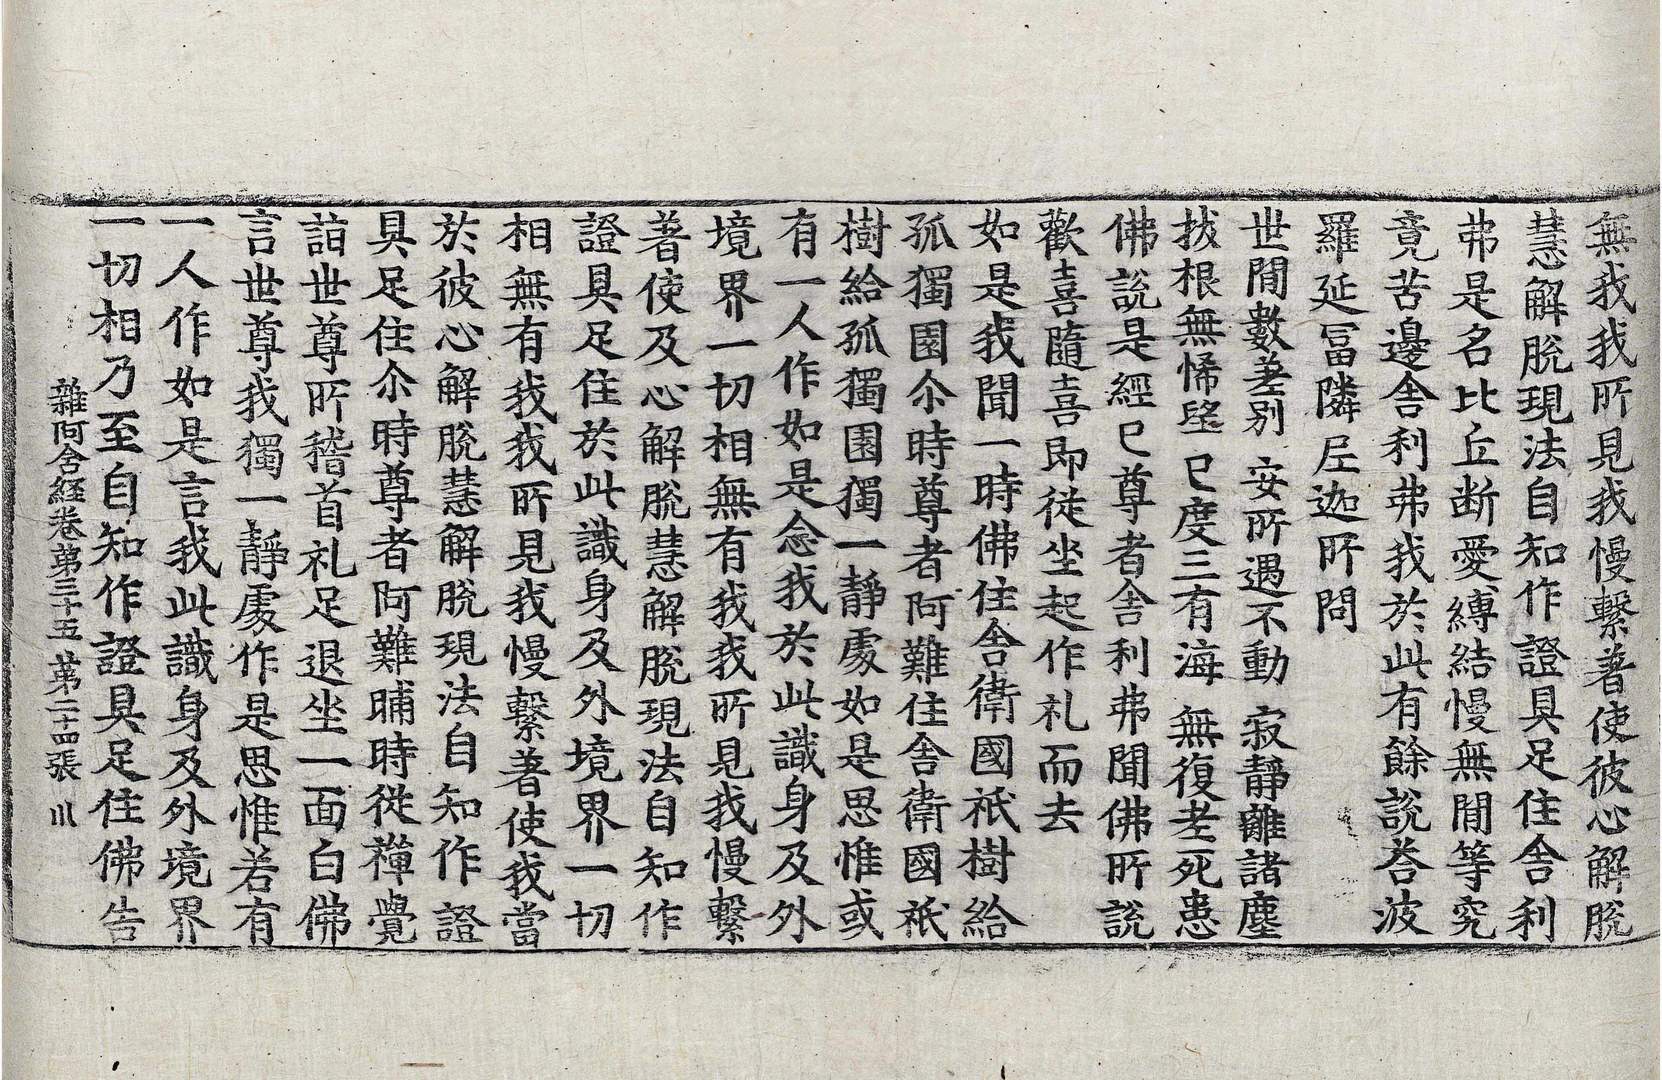 無我我所見我慢繫著使彼心解脫
慧解脫現法自知作證具足住舍利
弗是名比丘断愛縛結慢無閒等究
竟苦邊舍利弗我於此有餘說荅波
羅延冨隣尼迦所問
世閒數差别 安所遇不動 寂靜離諸塵
拔根無悕望 已度三有海 無復老死患
佛說是經已尊者舍利弗聞佛所說
歡喜隨喜即從坐起作礼而去
如是我聞一時佛住舍衛國祇樹給
孤獨園尒時尊者阿難住舍衛國祇
樹給孤獨園獨一靜處如是思惟或
有一人作如是念我於此識身及外
境界一切相無有我我所見我慢繫
著使及心解脫慧解脫現法自知作
證具足住於此識身及外境界一切
相無有我我所見我慢繫著使我當
於彼心解脫慧解脫現法自知作證
具足住尒時尊者阿難晡時從禪覺
詣世尊所稽首礼足退坐一面白佛
言世尊我獨一靜處作是思惟若有
一人作如是言我此識身及外境界
一切相乃至自知作證具足住佛告
雜阿含経卷第三十五 第二十四張 川